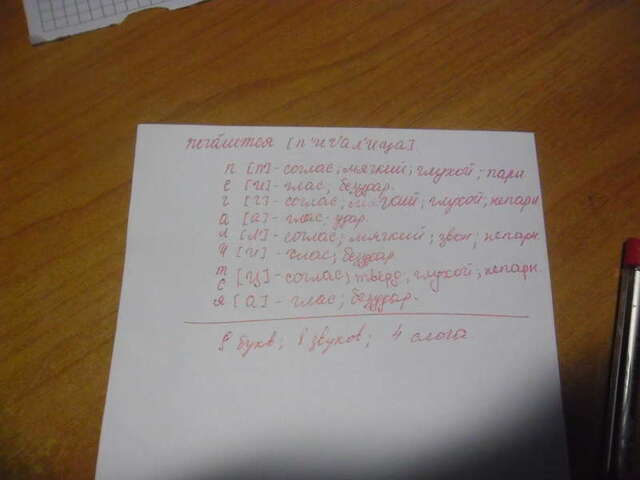 [п'иг'ал'ица]
п [п] - соглас; мягкий; глухой; парн
е [и] - глас; безудар.
г [г] - соглас; мягкий; глухой; непарн
а [а] - глас; удар.
л [л] - соглас; мягкий; звон; непарн.
и [и] - глас; безудар
т с [ц] - соглас; твердо; глухой; непарн.
я [а] - глас; безудар.
9 букв; 8 звуков; 4 слога